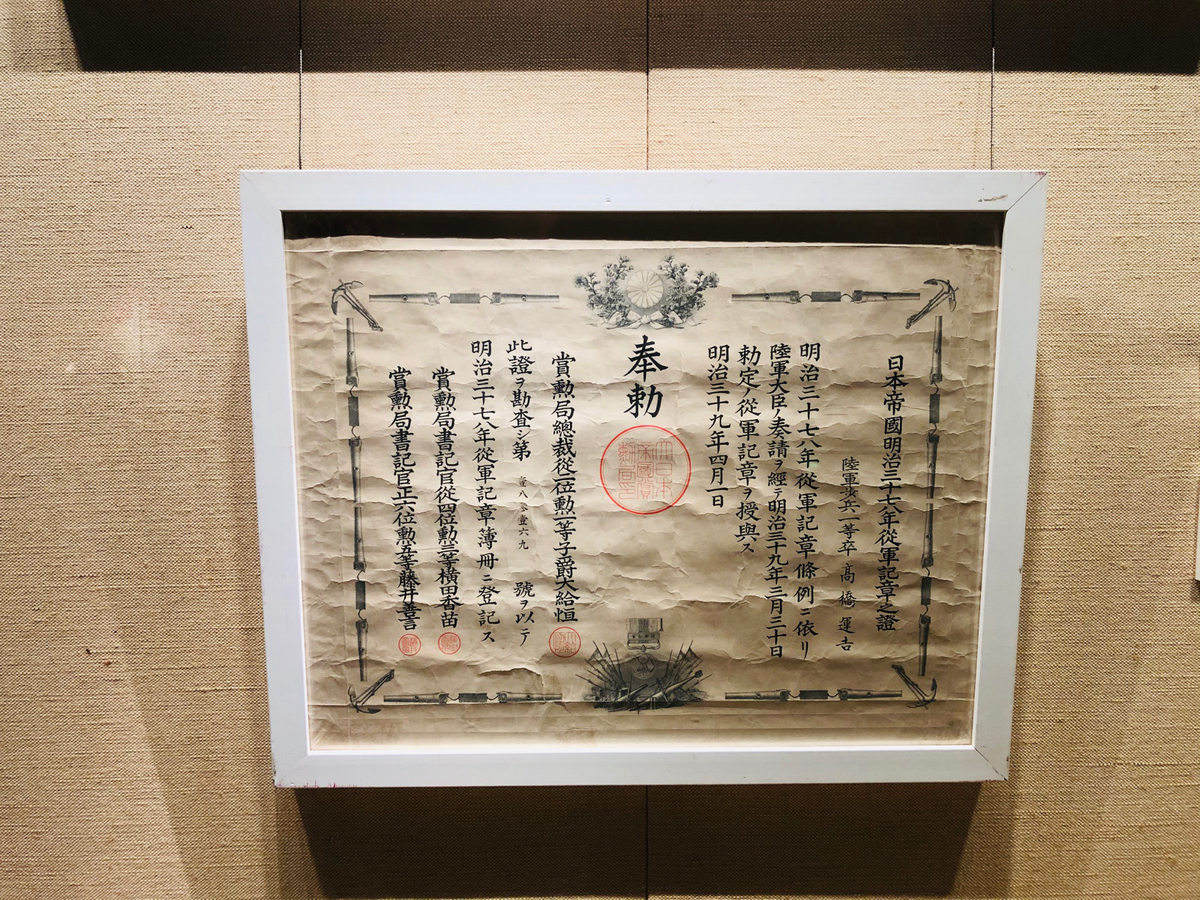 日本帝國明治三十七八年從軍記章之證
陸軍歩兵一等卒 高橋運吉
明治三十七八年從軍記章條例ニ依リ
陸軍大臣ノ奏請ヲ經テ明治三十九年三月三十日
勅定ノ從軍記章ヲ授與ス
明治三十九年四月一日
奉勅
賞勲局總裁從二位勲一等子爵大給恒
此證ヲ勘査シ第 號ヲ以テ
明治三十七八年從軍記章簿冊ニ登記ス
賞勲局書記官從四位勲三等横田香苗
賞勲局書記官正六位勲五等藤井善言